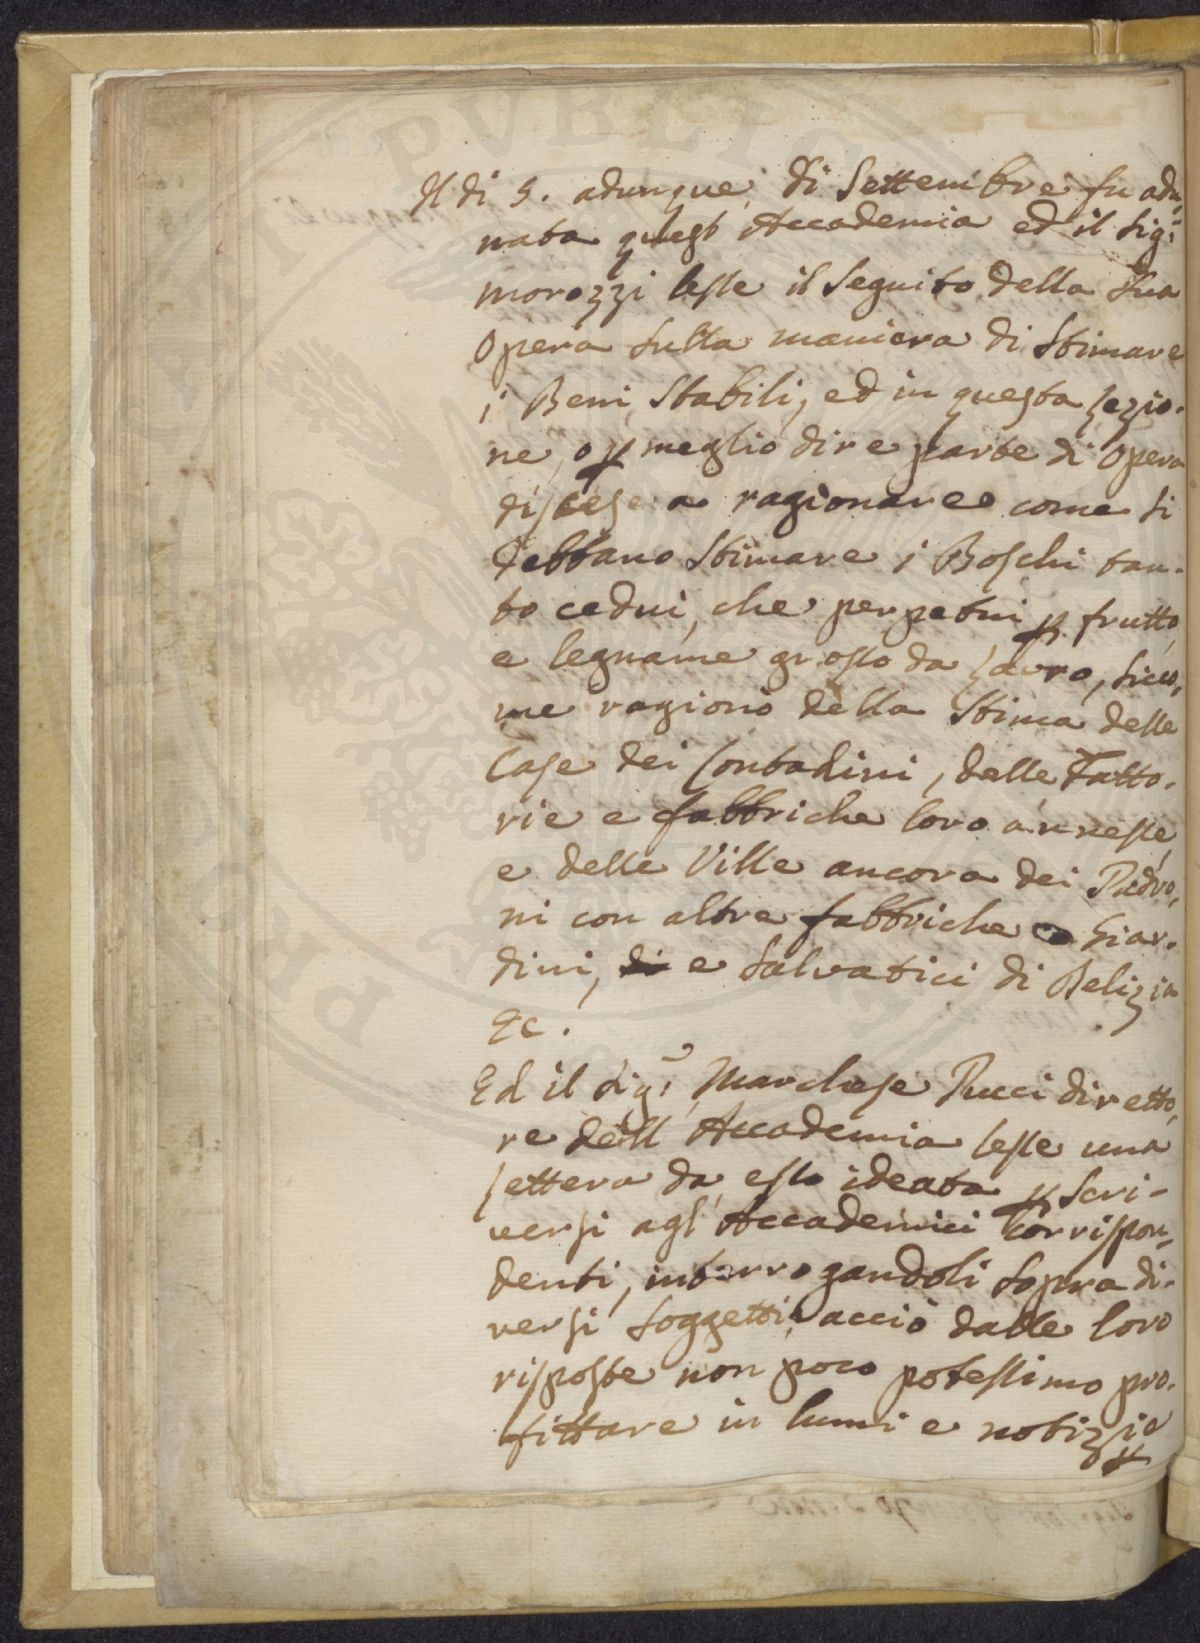 Il di 5. adunque di Settembre fu adu-
nata quest Accademia ed il Sig.r
Morozzi lesse il Seguito della Sua
Opera Sulla maniera di Stimare
i Beni Stabili, ed in questa Lezio-
ne, o p meglio dire parte di Opera
discese a ragionare come si
debbano Stimare i Boschi tan-
to cedui, che perpetui p frutto,
e legname grosso da lavro, Sicco-
me ragionò della Stima delle
Case dei Contadini, delle Fatto-
rie e fabbriche loro annesse,
e delle Ville ancora dei Padro-
ni con altre fabbriche Giar-
dini, di e Salvatici di Delizia
Ec.
Ed il Sig.r Marchese Pucci diretto-
re dell Accademia lesse una
Lettera da esso ideata p Scri-
versi agl' Accademici Corrispon-
denti, interrogandoli Sopra di-
versi Soggetti, acciò dalle loro
risposte non poco potessimo pro-
fittare in lumi e notizie
p